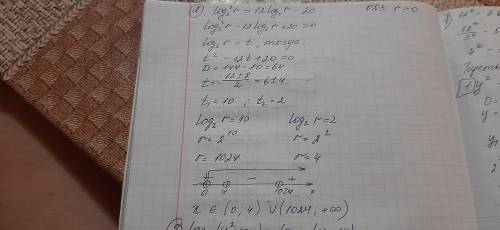 2) log₂²x > 12log₂x - 20 ОДЗ: x > 0
log₂²x - 12log₂x + 20 > 0
log₂x = t, тогда:
t² - 12t + 20 = 0
D = 144 - 80 = 64
t = 12±8/2 = 6±4
t₁ = 10 ; t₂ = 2
log₂x = 10 log₂x = 2
x = 2¹⁰ x = 2²
x = 1024 x = 4
+ - +
0 4 1024 x
x ∈ (0; 4) ∪ (1024; +∞)